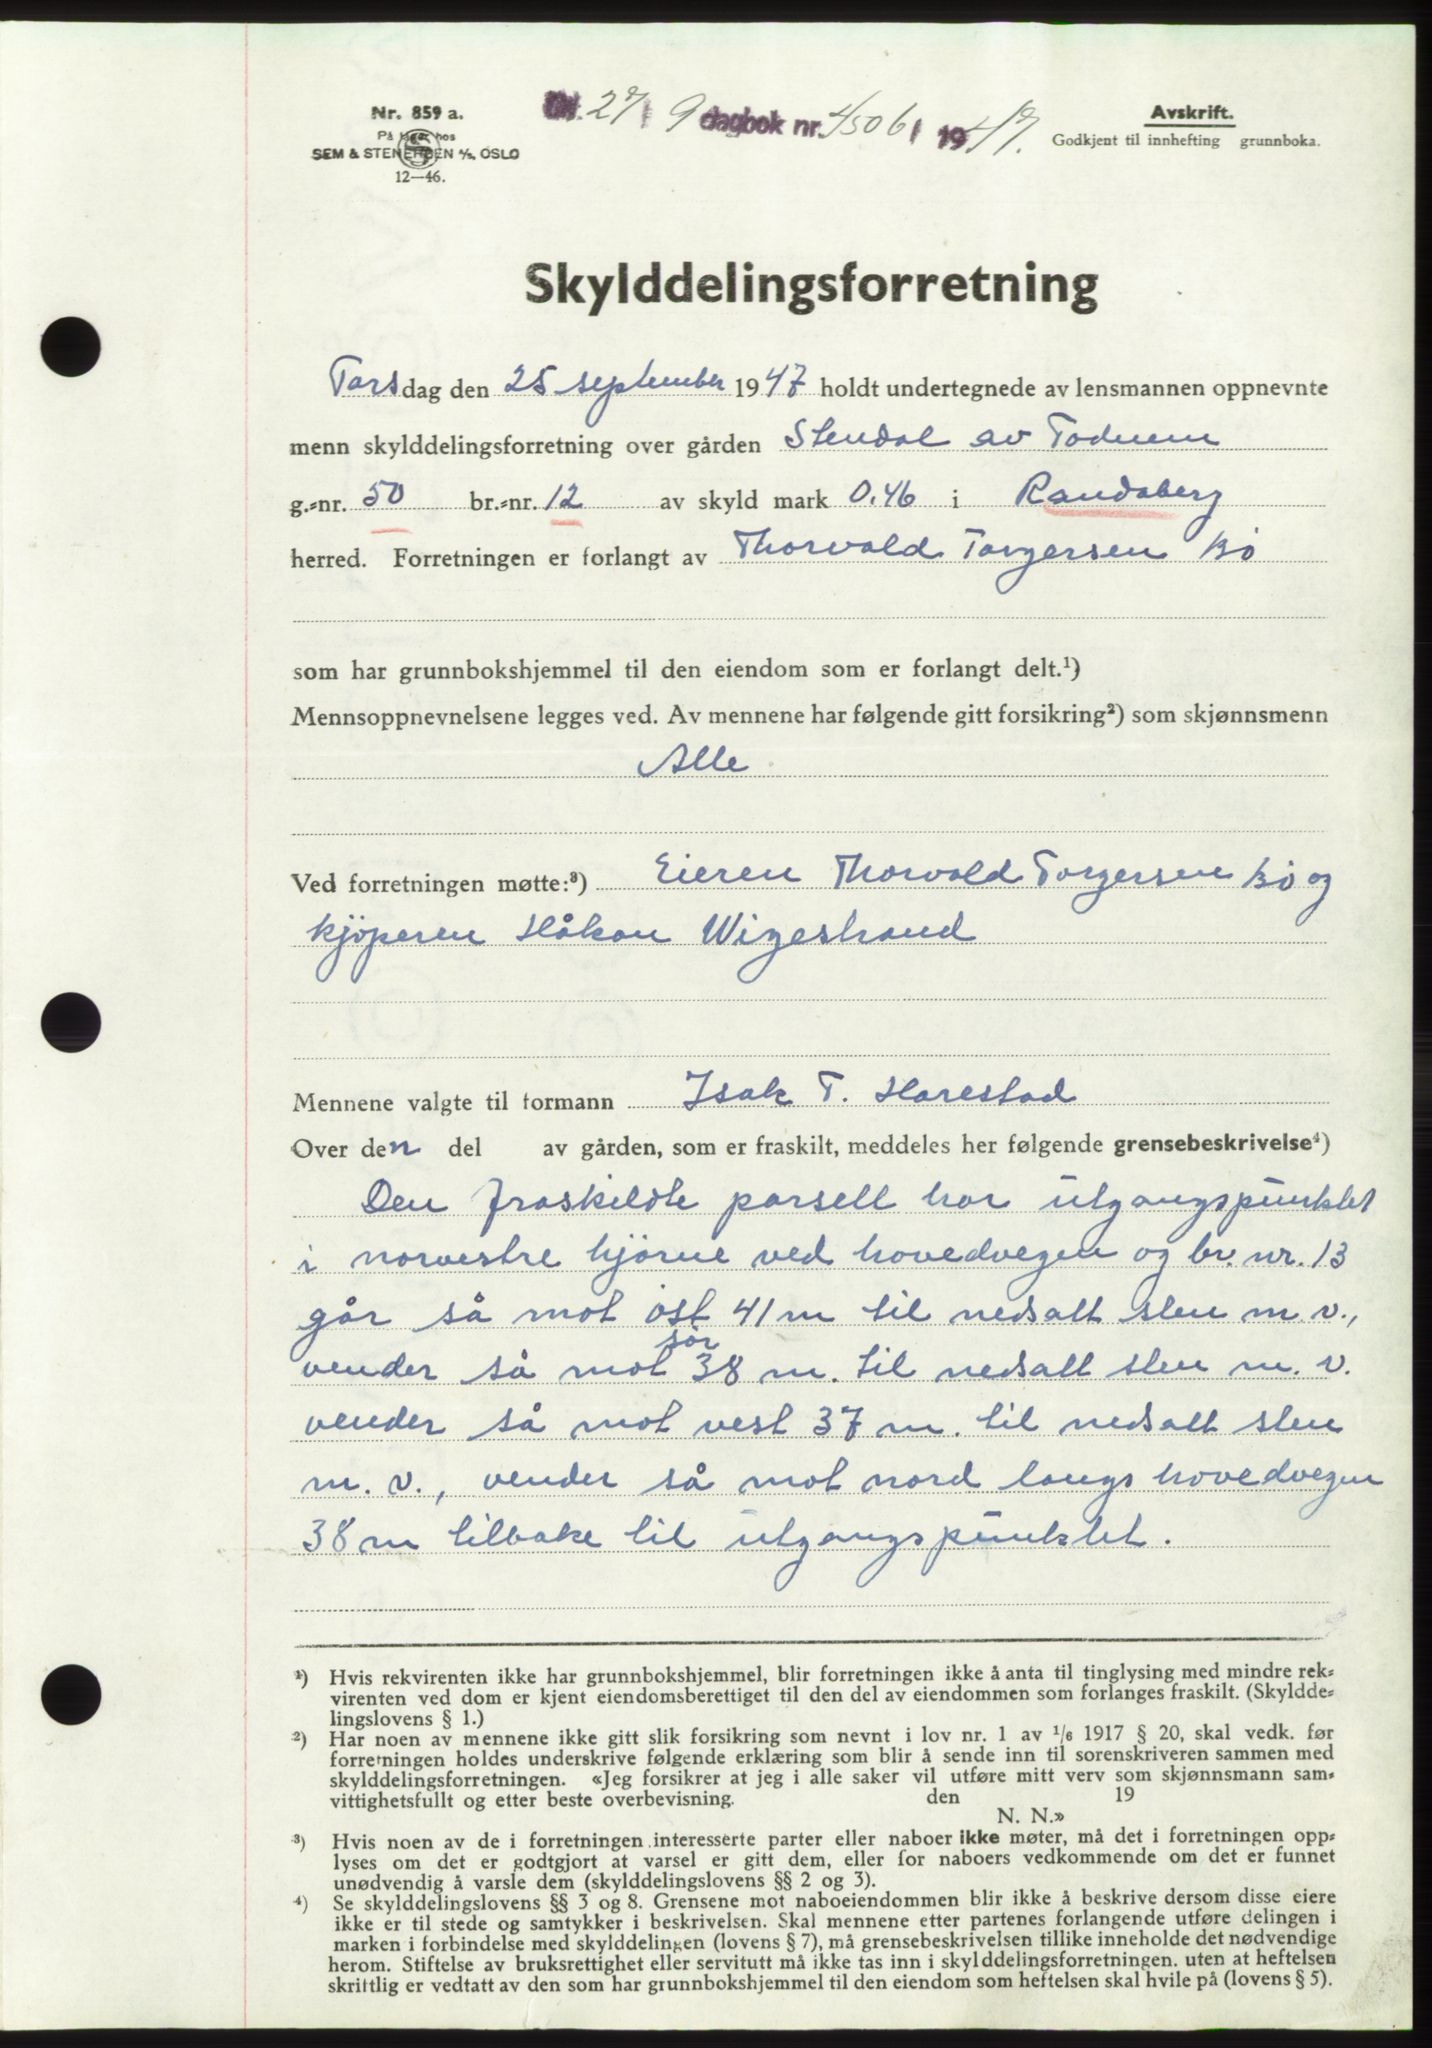 Nr. 859 a.
På lager hos
SEM & STENERSEN A/S, OSLO
12—46.
27/9 dagbok nr. 4506/1947.
Avskrift.
Godkjent til innhefting grunnboka.
Skylddelingsforretning
Torsdag den 25 september 1947 holdt undertegnede av lensmannen oppnevnte
menn skylddelingsforretning over gården Stendal av Todnem
g.=nr. 50 br.=nr. 12 av skyld mark 0.46 i Randaberg
herred. Forretningen er forlangt av Thorvald Torgersen Bö
som har grunnbokshjemmel til den eiendom som er forlangt delt.¹)
Mennsoppnevnelsene legges ved. Av mennene har følgende gitt forsikring²) som skjønnsmenn
Alle
Ved forretningen møtte:³) Eieren Thorvald Torgersen Bö og
kjöperen Håkon Wigestrand
Mennene valgte til formann Isak T. Harestad
Over den del av gården, som er fraskilt, meddeles her følgende grensebeskrivelse⁴)
Den fraskildte parsell har utgangspunktet
i norvestre hjörne ved hovedvegen og br. nr. 13
går så mot öst 41 m til nedsatt sten m. v.,
vender så mot sör 38 m. til nedsatt sten m. v.
vender så mot vest 37 m. til nedsatt sten
m. v., vender så mot nord langs hovedvegen
38 m tilbake til utgangspunktet.
¹) Hvis rekvirenten ikke har grunnbokshjemmel, blir forretningen ikke å anta til tinglysing med mindre rek=
virenten ved dom er kjent eiendomsberettiget til den del av eiendommen som forlanges fraskilt. (Skyldde=
lingslovens § 1.)
²) Har noen av mennene ikke gitt slik forsikring som nevnt i lov nr. 1 av 1/6 1917 § 20, skal vedk. før
forretningen holdes underskrive følgende erklæring som blir å sende inn til sorenskriveren sammen med
skylddelingsforretningen. «Jeg forsikrer at jeg i alle saker vil utføre mitt verv som skjønnsmann sam=
vittighetsfullt og etter beste overbevisning. den 19
N. N.»
³) Hvis noen av de i forretningen interesserte parter eller naboer ikke møter, må det i forretningen opp=
lyses om det er godtgjort at varsel er gitt dem, eller for naboers vedkommende om det er funnet
unødvendig å varsle dem (skylddelingslovens §§ 2 og 3).
⁴) Se skylddelingslovens §§ 3 og 8. Grensene mot naboeiendommen blir ikke å beskrive dersom disse eiere
ikke er til stede og samtykker i beskrivelsen. Skal mennene etter partenes forlangende utføre delingen i
marken i forbindelse med skylddelingen (lovens § 7), må grensebeskrivelsen tillike inneholde det nødvendige
herom. Stiftelse av bruksrettighet eller servitutt må ikke tas inn i skylddelingsforretningen. uten at heftelsen
skriftlig er vedtatt av den som har grunnbokshjemmel til den eiendom som heftelsen skal hvile på (lovens § 5).